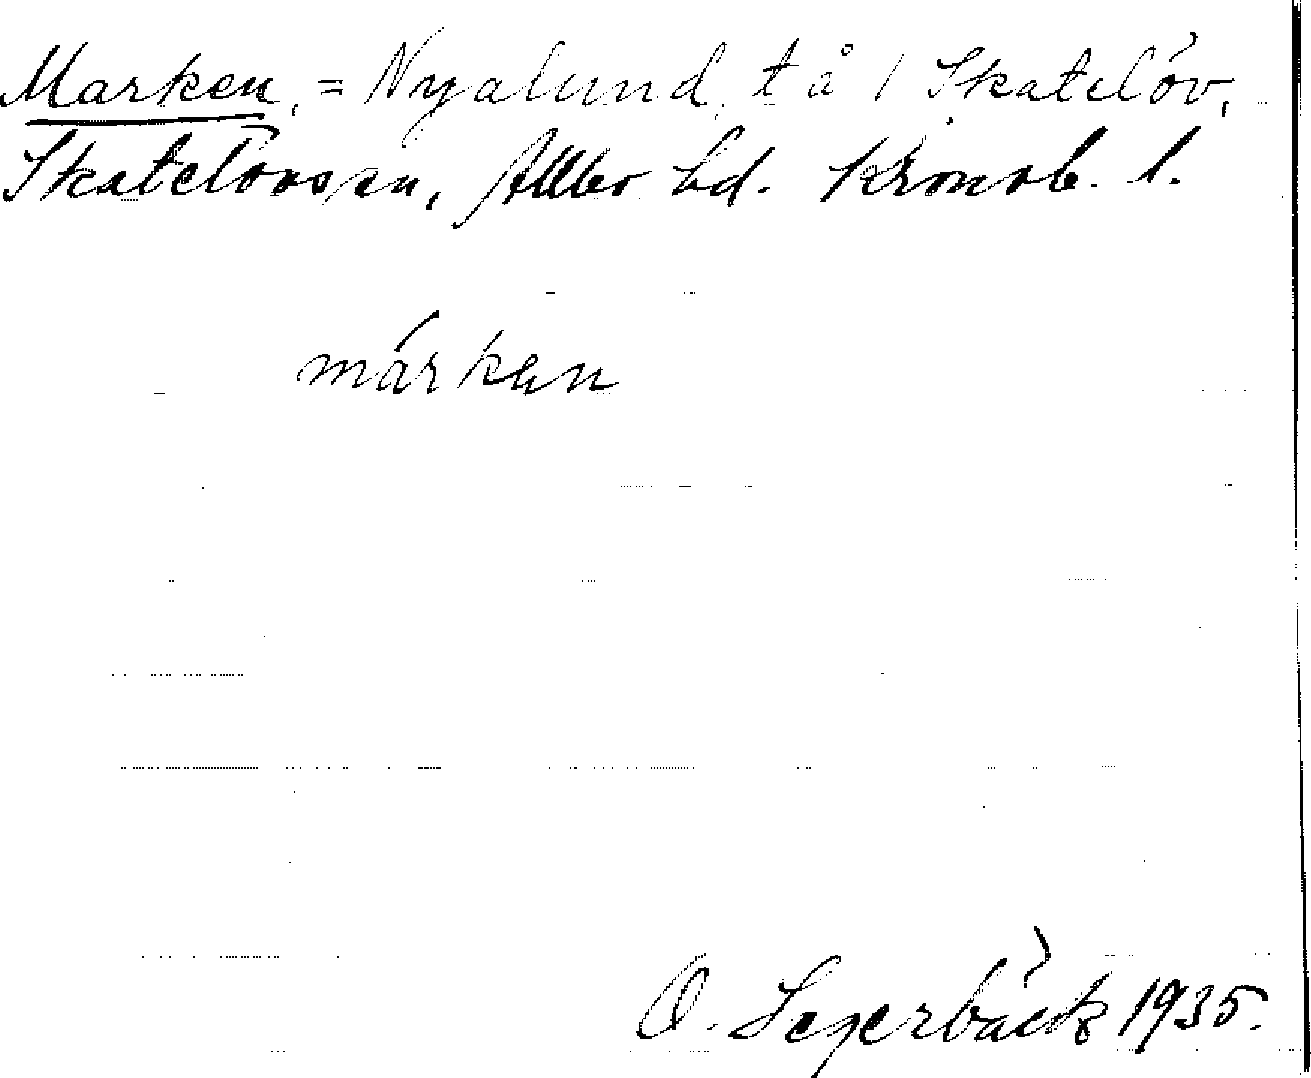 Marken, = Nyalund, t å / Skatelöv,
Skatelövs sn, Allbo hd. Kronob. l.
márken
O. Segerbäck 1935.